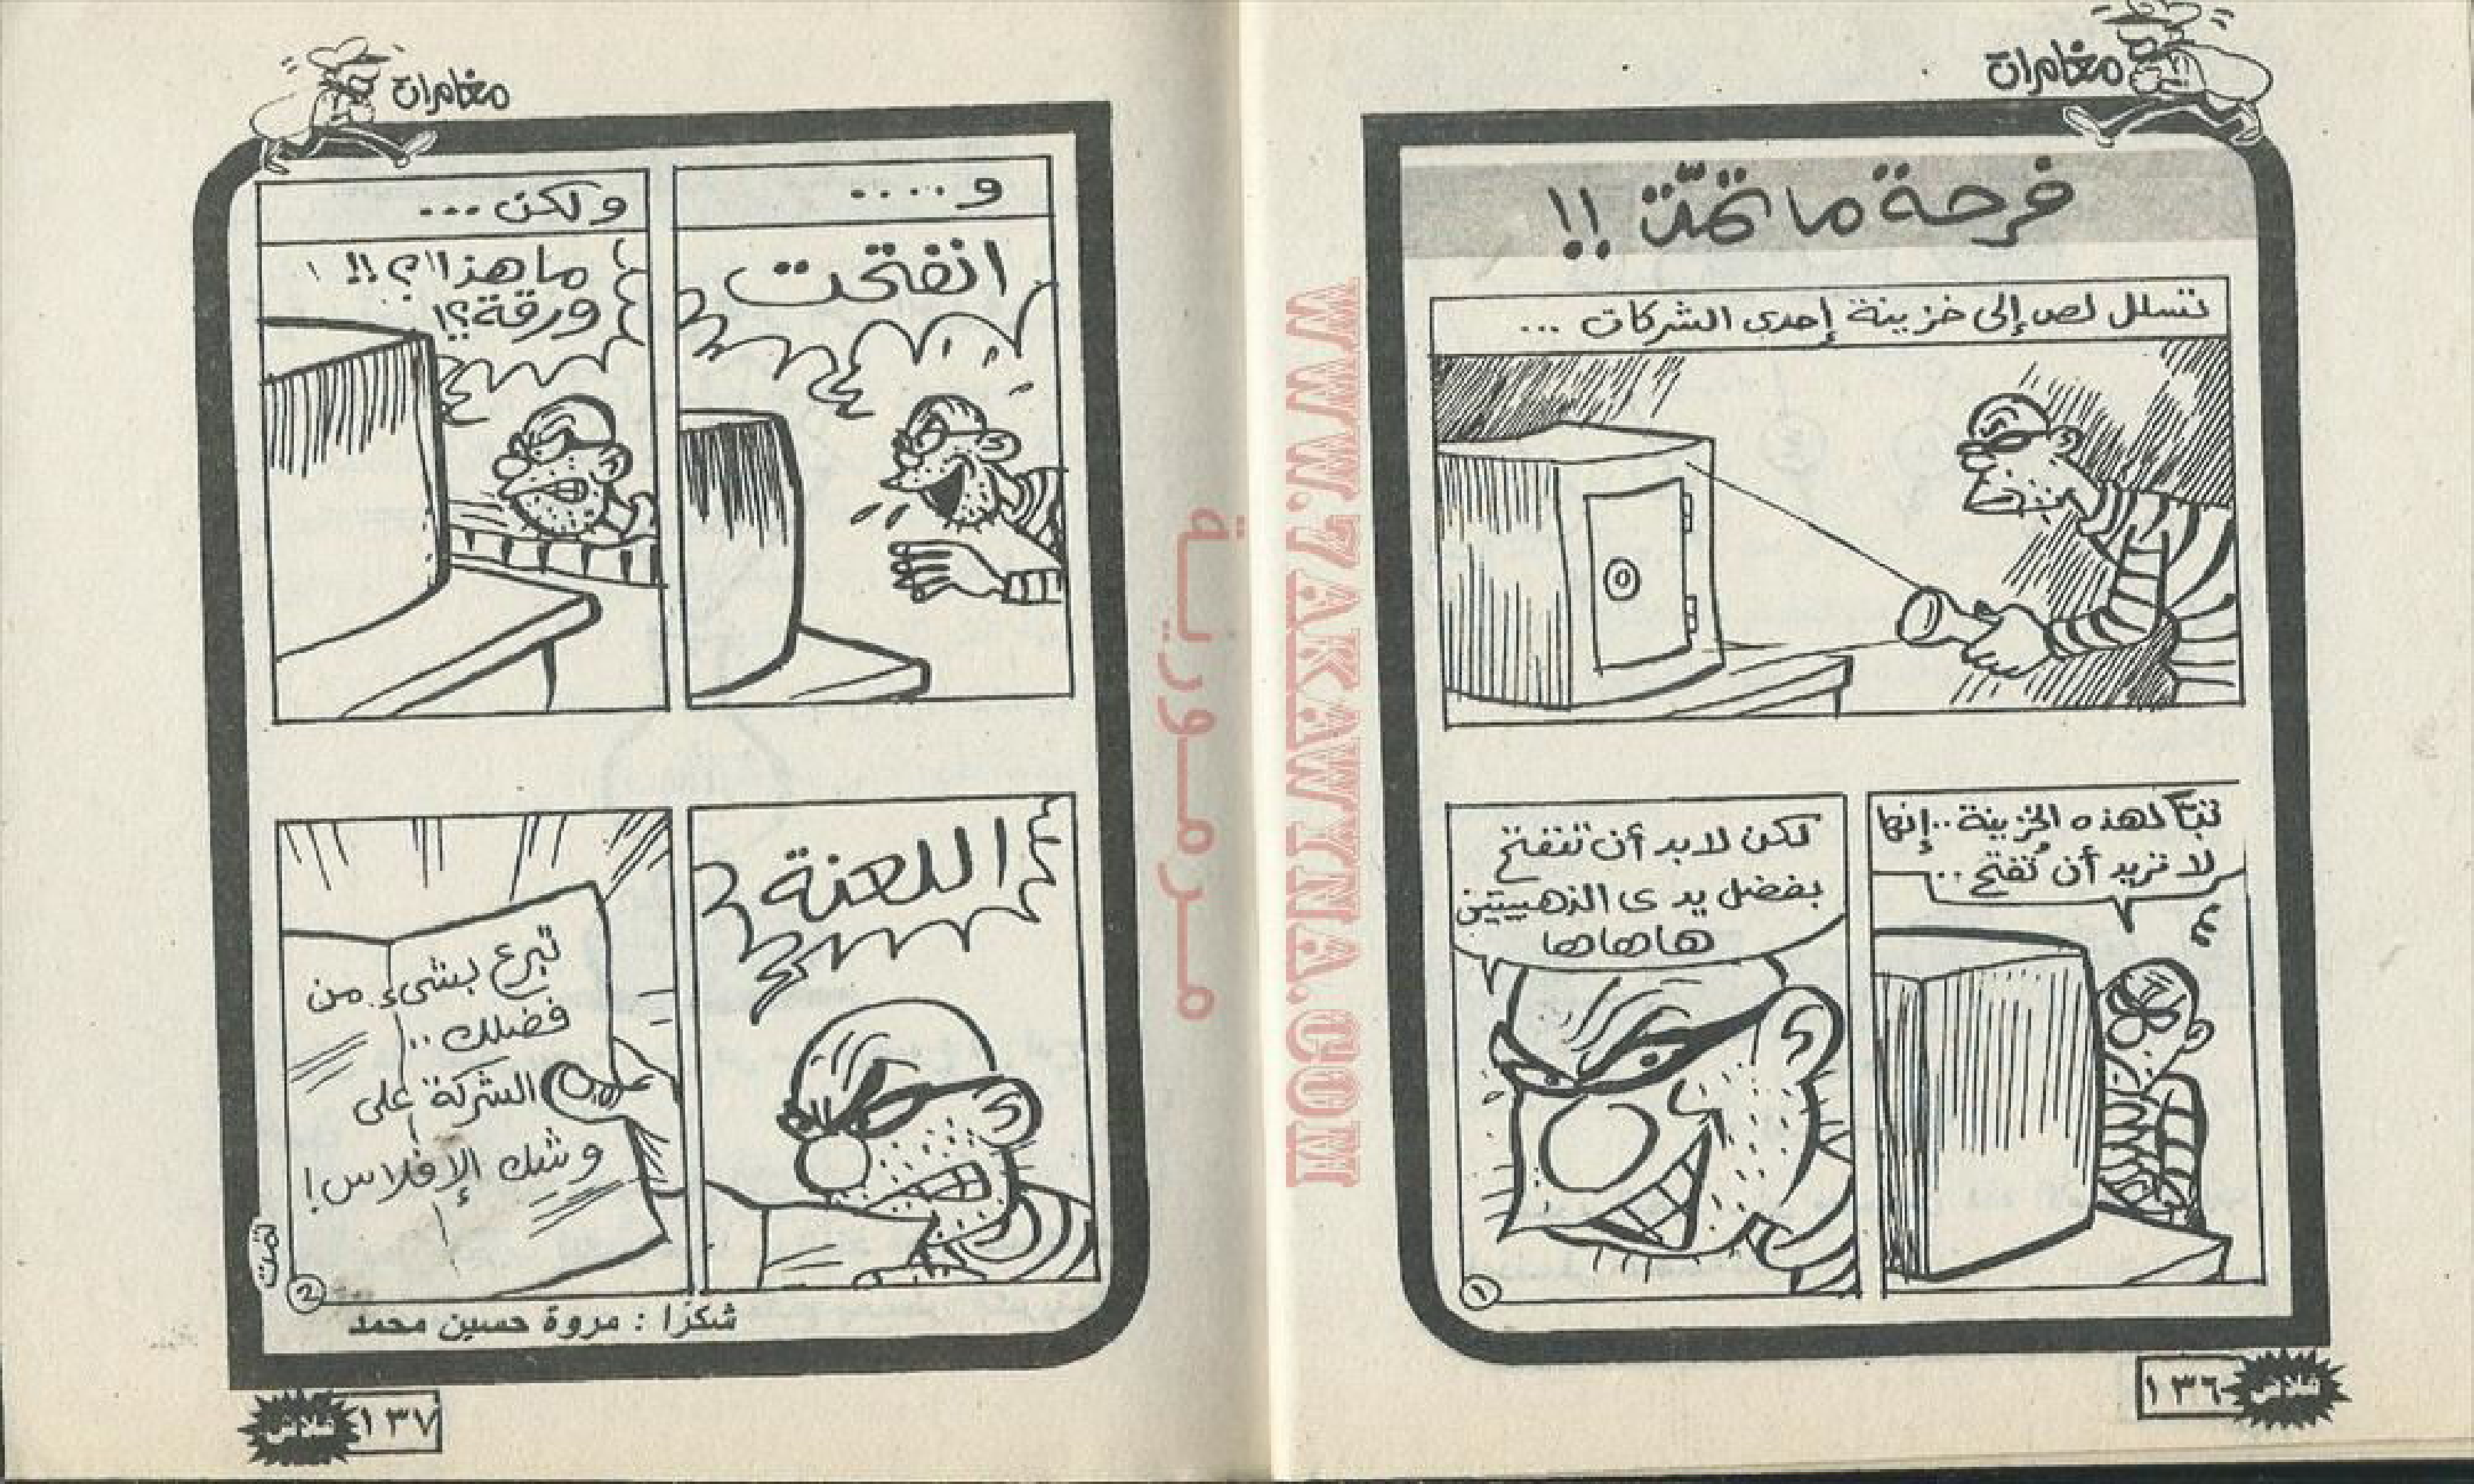 مغامرات
فرحة ما تمّت !!
تسلل لص إلى خزينة إحدى الشركات ...
تبّاً لهذه الخزينة .. إنها
لا تريد أن تُفتح ..
لكن لابد أن تنفتح
بفضل يدى الذهبيتين
هاهاها
١
١٣٦
فلاش
مغامرات
و ....
انفتحت
ولكن ...
ما هذا ؟!!
ورقة ؟!
اللعنة
تبرع بشىء من
فضلك ..
الشركة على
وشك الإفلاس !
تمت
2
شكرًا : مروة حسين محمد
١٣٧
فلاش
مرمورية
WWW.7AKAWYNA.COM